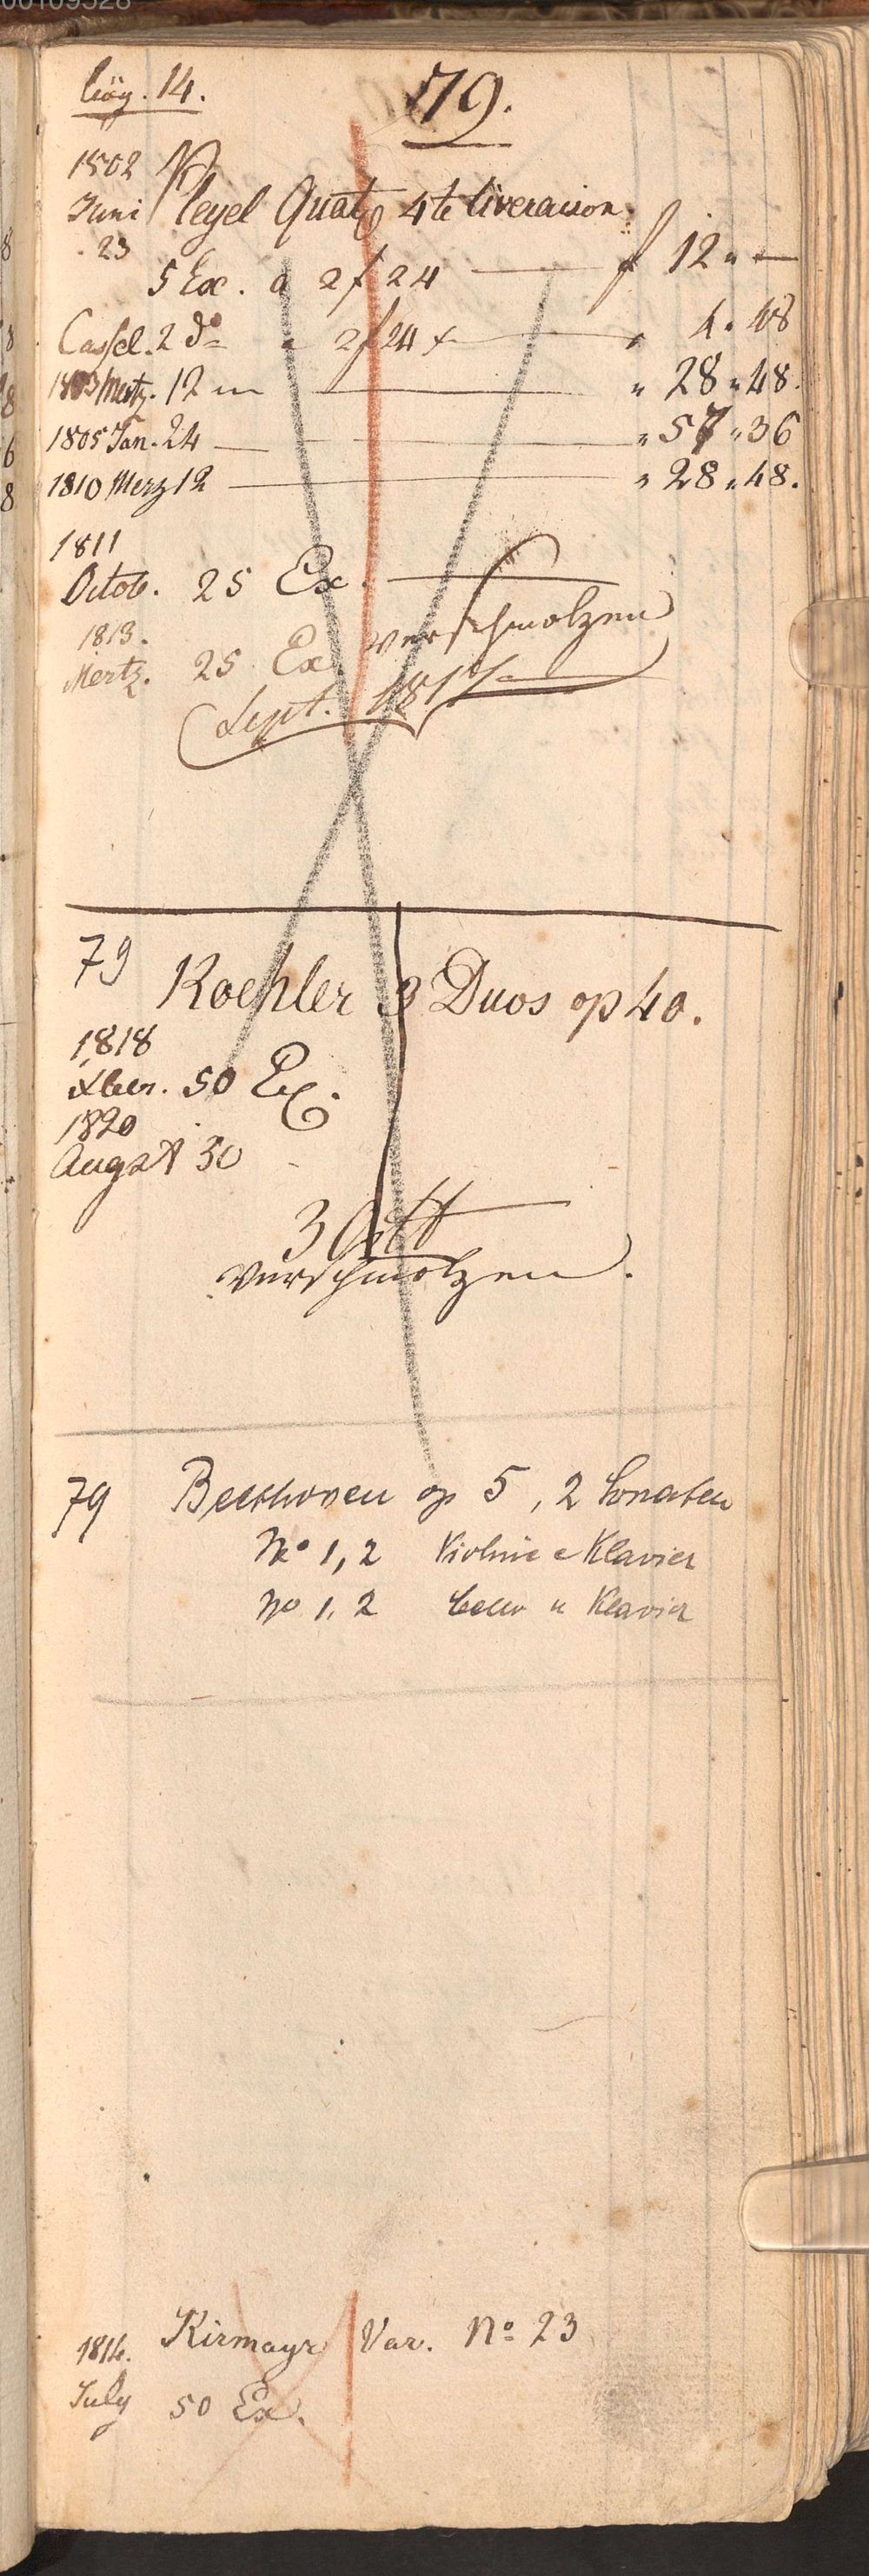 14.
79.
1802
Juni Pleyel Quat 4te liveraison
23
5 Ex. a 2f 24 — f 12 " —
Cassel. 2 do " 2f 24 x — " 4 " 48
1803 Mertz. 12 — " 28 " 48.
1805 Jan. 24 — " 57 " 36
1810 Merz 12 — " 28 " 48.
1811
Octob. 25 Ex.
1813.
Mertz. 25 Ex. verschmolzen
Sept. 1817
79 Koehler 3 Duos op 40.
1818
Xber. 50 Ex.
1820
August 50
verschmolzen.
79 Beethoven op 5, 2 Sonaten
No 1, 2 Violine u Klavier
No 1, 2 Cello u Klavier
1814. Kirmayr Var. No 23
July 50 Ex.